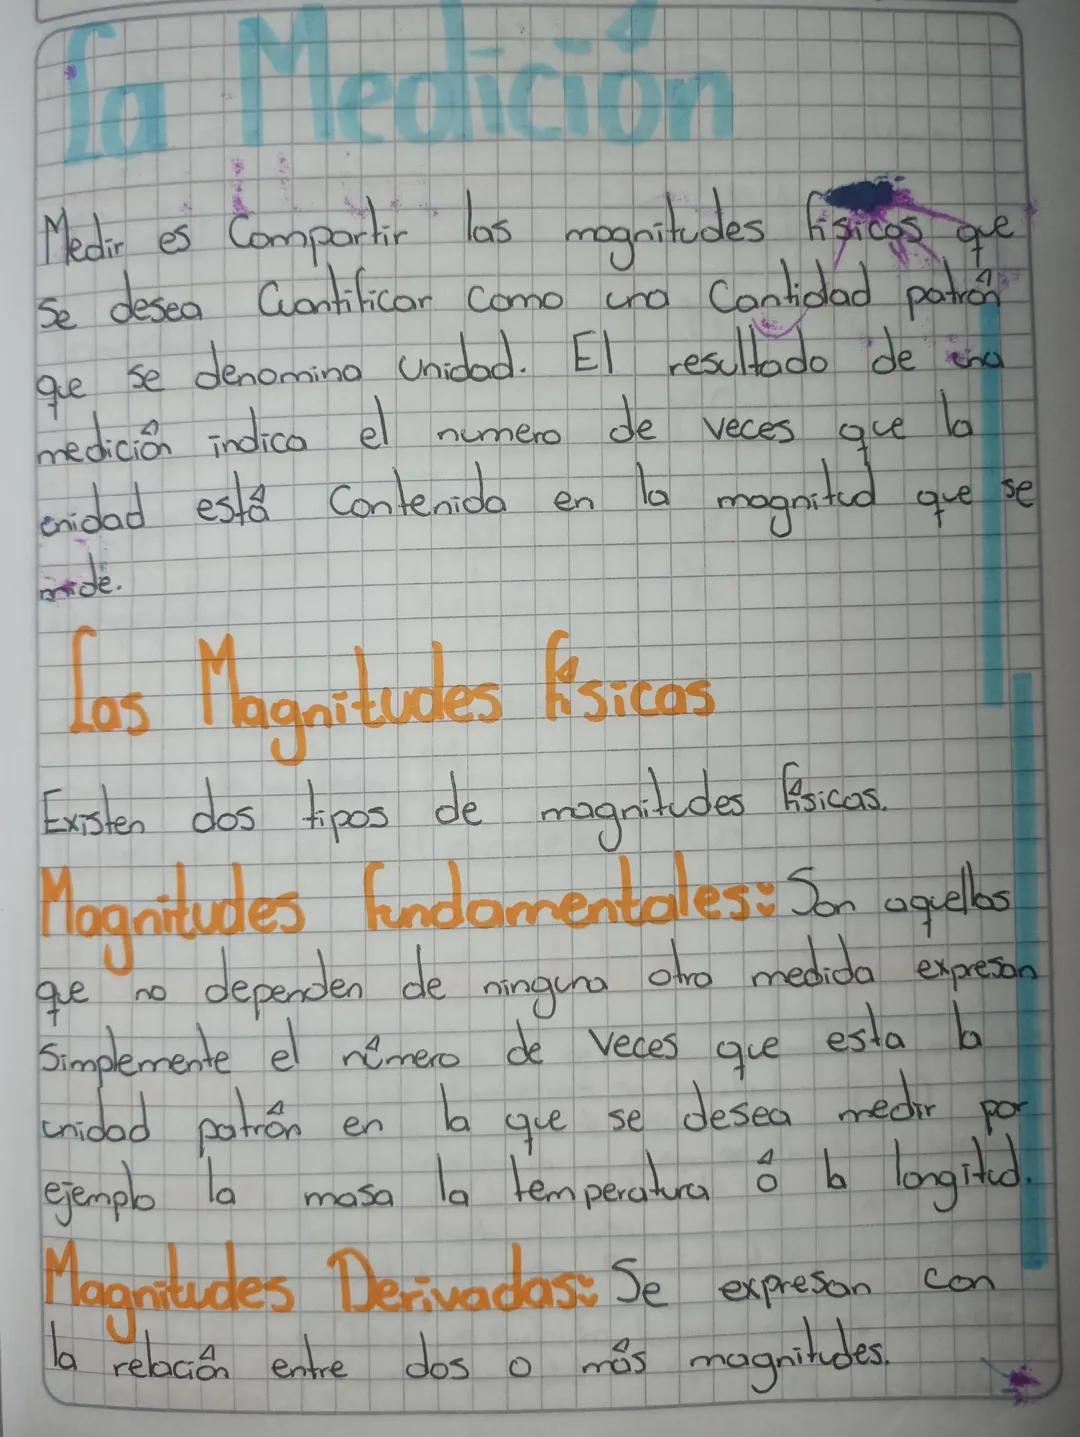 La Medición
Medir es Compartir las magnitudes físicas que
se desea Cuantificar como una Cantidad patrón
que se denomina Unidad. El resultado de una
medición indica el numero de veces que la
unidad está Contenida en la magnitud que se
mide.
Las Magnitudes físicas
Existen dos tipos de magnitudes físicas.
Magnitudes fundamentales: Son aquellas
que no dependen de ninguna otra medida expresan
Simplemente el número de veces que esta la
unidad patrón en la que se desea medir por
ejemplo la masa la temperatura ó la longitud.
Magnitudes Derivadas: Se expresan con
la relación entre dos o más magnitudes.